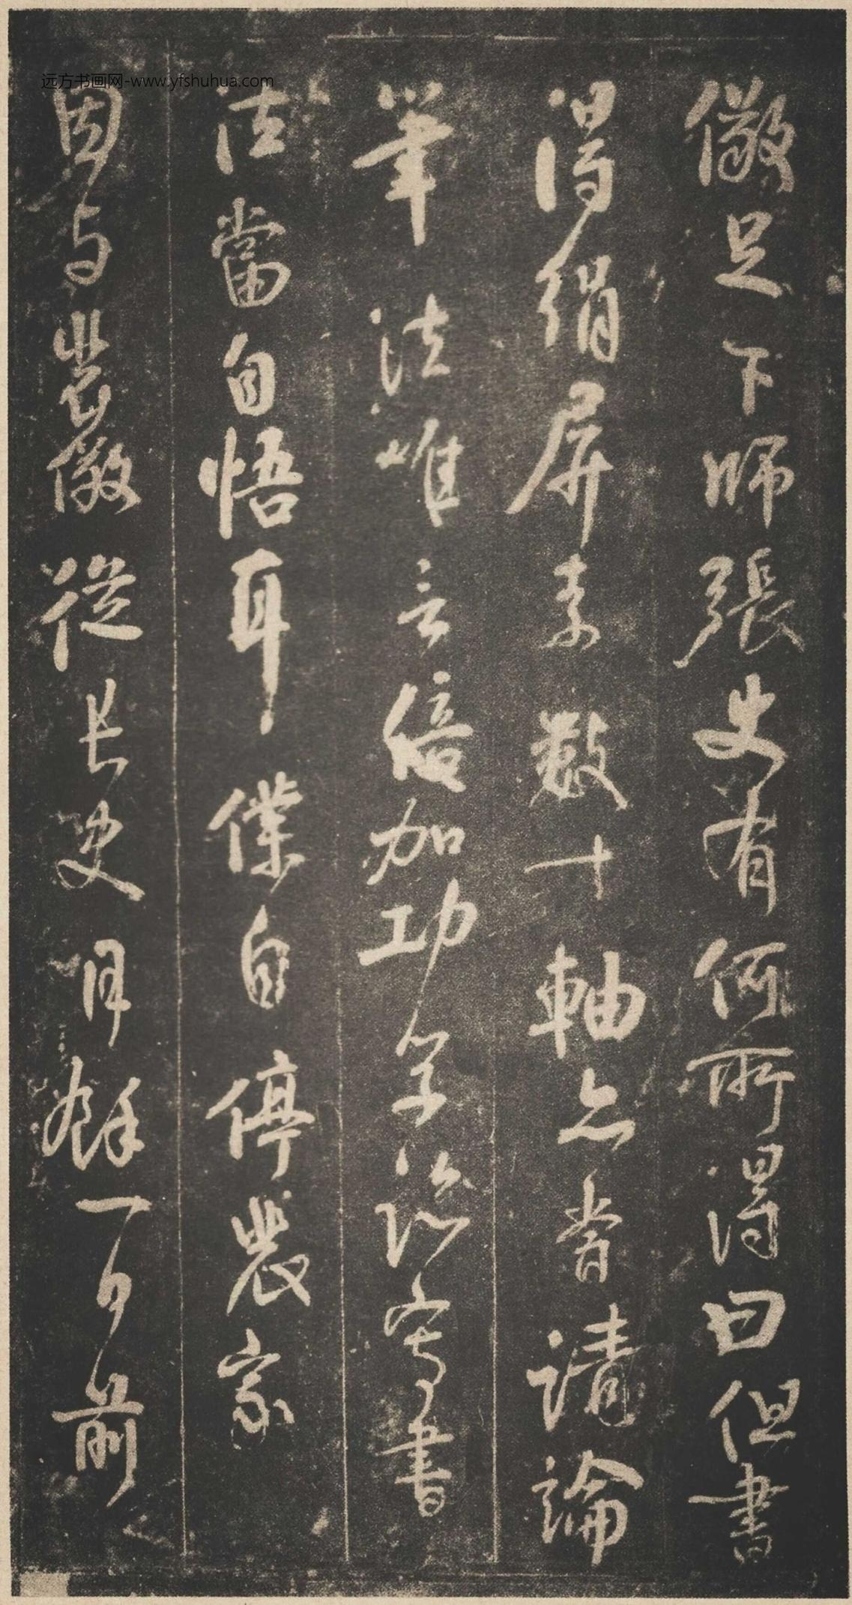 儆足下師張史有何所得曰但書
得絹屏素數十軸亦嘗請論
筆法唯言倍加功學臨寫書
法當自悟耳僕自停裴家
因与裴儆從長史月餘一日前
远方书画网-www.yfshuhua.com